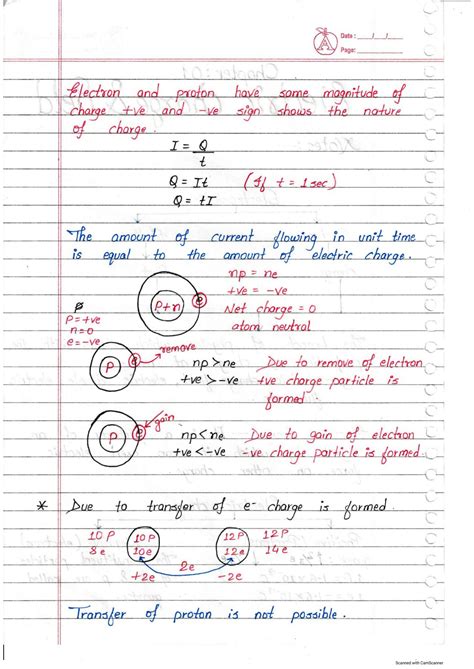 A
Date : __/__/__
Page:
Electron and proton have same magnitude of
charge +ve and -ve sign shows the nature
of charge.
I = Q
t
Q = It (If t = 1 sec)
Q = tI
The amount of current flowing in unit time
is equal to the amount of electric charge.
np = ne
+ve = -ve
P+n e Net charge = 0
atom neutral
P = +ve
n = 0
e = -ve
P e remove np > ne Due to remove of electron
+ve > -ve +ve charge particle is
formed
P e gain np < ne Due to gain of electron
+ve < -ve -ve charge particle is formed
* Due to transfer of e- charge is formed.
10 P 10 P 12 P 12 P
8 e 10 e 12 e 14 e
2e
+2e -2e
Transfer of proton is not possible.
Scanned with CamScanner